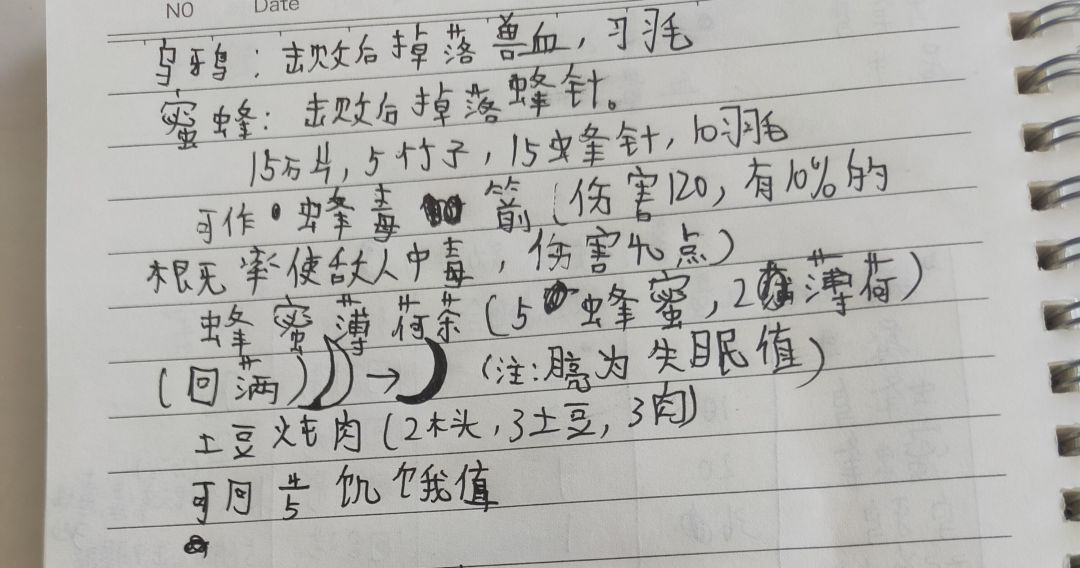 NO Date
乌鸦：击败后掉落兽血，习羽毛
蜜蜂：击败后掉落蜂针。
15万片，5竹子，15蜂针，10羽毛
可作蜂毒箭（伤害120，有10%的
根无率使敌人中毒，伤害40点）
蜂蜜薄荷茶（5蜂蜜，2薄荷）
（回满）→（注：月亮为失眠值）
土豆炖肉（2木头，3土豆，3肉）
可回4/5饥饿值